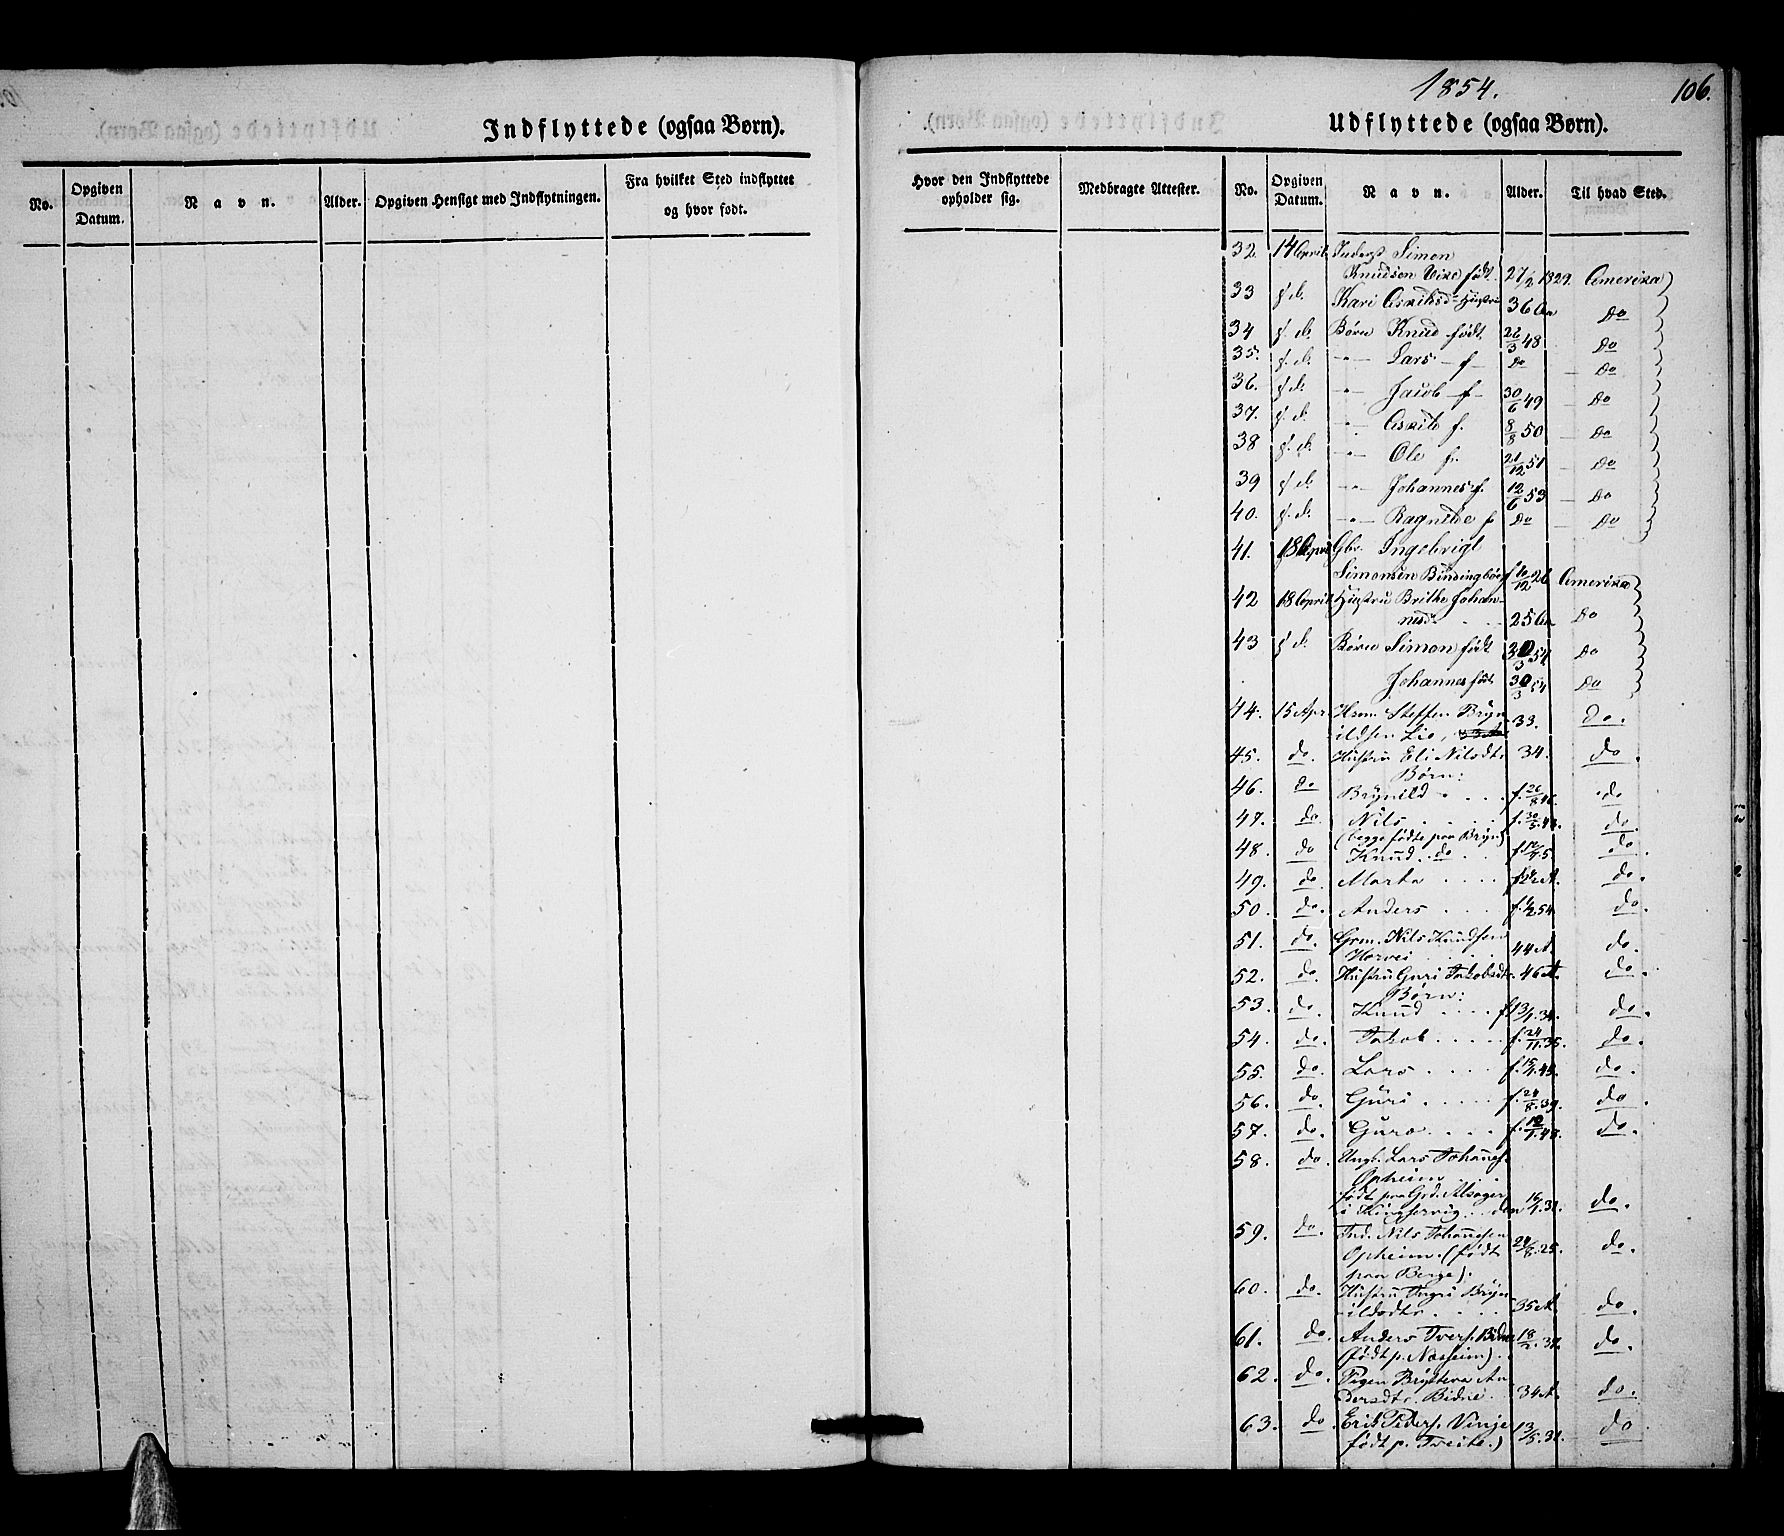 1854.
106.
Indflyttede (ogsaa Børn).
Udflyttede (ogsaa Børn).
No.
Opgiven Datum.
Navn.
Alder.
Opgiven Hensigt med Indflytningen.
Fra hvilket Sted indflyttet og hvor født.
Hvor den Indflyttede opholder sig.
Medbragte Attester.
No.
Opgiven Datum.
Navn.
Alder.
Til hvad Sted.
32. 14 April Inderst Simon
Knudsen Vike født 27/2 1829. Amerika
33 s. d. Kari Askilsd. Hustru 36 Aar Do
34 s. d. Børn Knud født 26/3 48 Do
35. s. d. –"– Lars – f – Do – Do
36. s. d. –"– Jacob – f – 30/6 49 – Do
37. s. d. –"– Askild f. 8/8 50 – Do
38 s. d. –"– Ole f. 21/12 51 – Do
39 s. d. –"– Johannes f. 12/6 53 – Do
40. s. d. –"– Ragnilde f. Do – Do
41. 18 April Gbr. Ingebrigt
Simonsen f 10/12 26 Amerika
42 18 April Hustru Brithe Johan-
nesd. 25 Aar Do
43 s. d. Børn Simon født 30/3 54 Do
Johannes født 30/3 54 Do
44. 15 Apr. Hsm. Steffen Bryn-
ildsen Lio, 33. do.
45. do. Hustru Eli Nilsdtr. 34. do.
Børn:
46. do Brynild . . . f. 26/8 46. do
47. do Nils . . . f. 30/5. 48. do.
(begge fødte paa Bryn)
48. do Knud. do . . do.
49. do. Marta . . . . do.
50. do. Anders . . . f. 1/2 54. do.
51. do. Grm. Nils Knudsen
Horvei . . . . 44 A. do.
52. do. Hustru Guri Jakobsdtr. 46 A. do.
Børn:
53. do. Knud . . . . f. 13/1. 34. do.
54. do. Jakob . . . . f. 24/11. 35. do.
55. do. Lars . . . . f. 15/4. 45. do.
56. do. Guri . . . . f. 24/8. 39. do.
57. do. Guro . . . . f. 12/1. 48. do.
58. do. Ungk. Lars Johanes.
Opheim . . .
født paa Grd. Alsager
i Kingservig . . den 16/4. 31. do.
59. do. Ind. Nils Johannesen
Opheim. (født 24/8. 25. do.
paa Berge).
60. do. Hustru Ingri Bryn-
ildsdtr. . . . 35 A. do.
61. do. Anders Ivers. Bidne 18/2. 32. do.
(født p. Næsheim) .
62. do. Pigen Brytteva An-
dersdtr. Bidne. 34 A. do.
63. do. Erik Peders. Vinje 13/5. 31. do
født p. Tveite.)